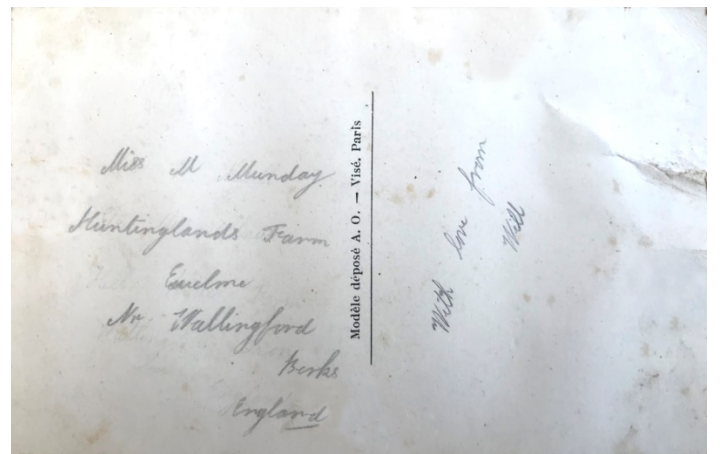 Miss M Munday
Huntinglands Farm
Ewelme
Nr Wallingford
Berks
England
Modèle déposé A. O. — Visé. Paris
With love from
Will